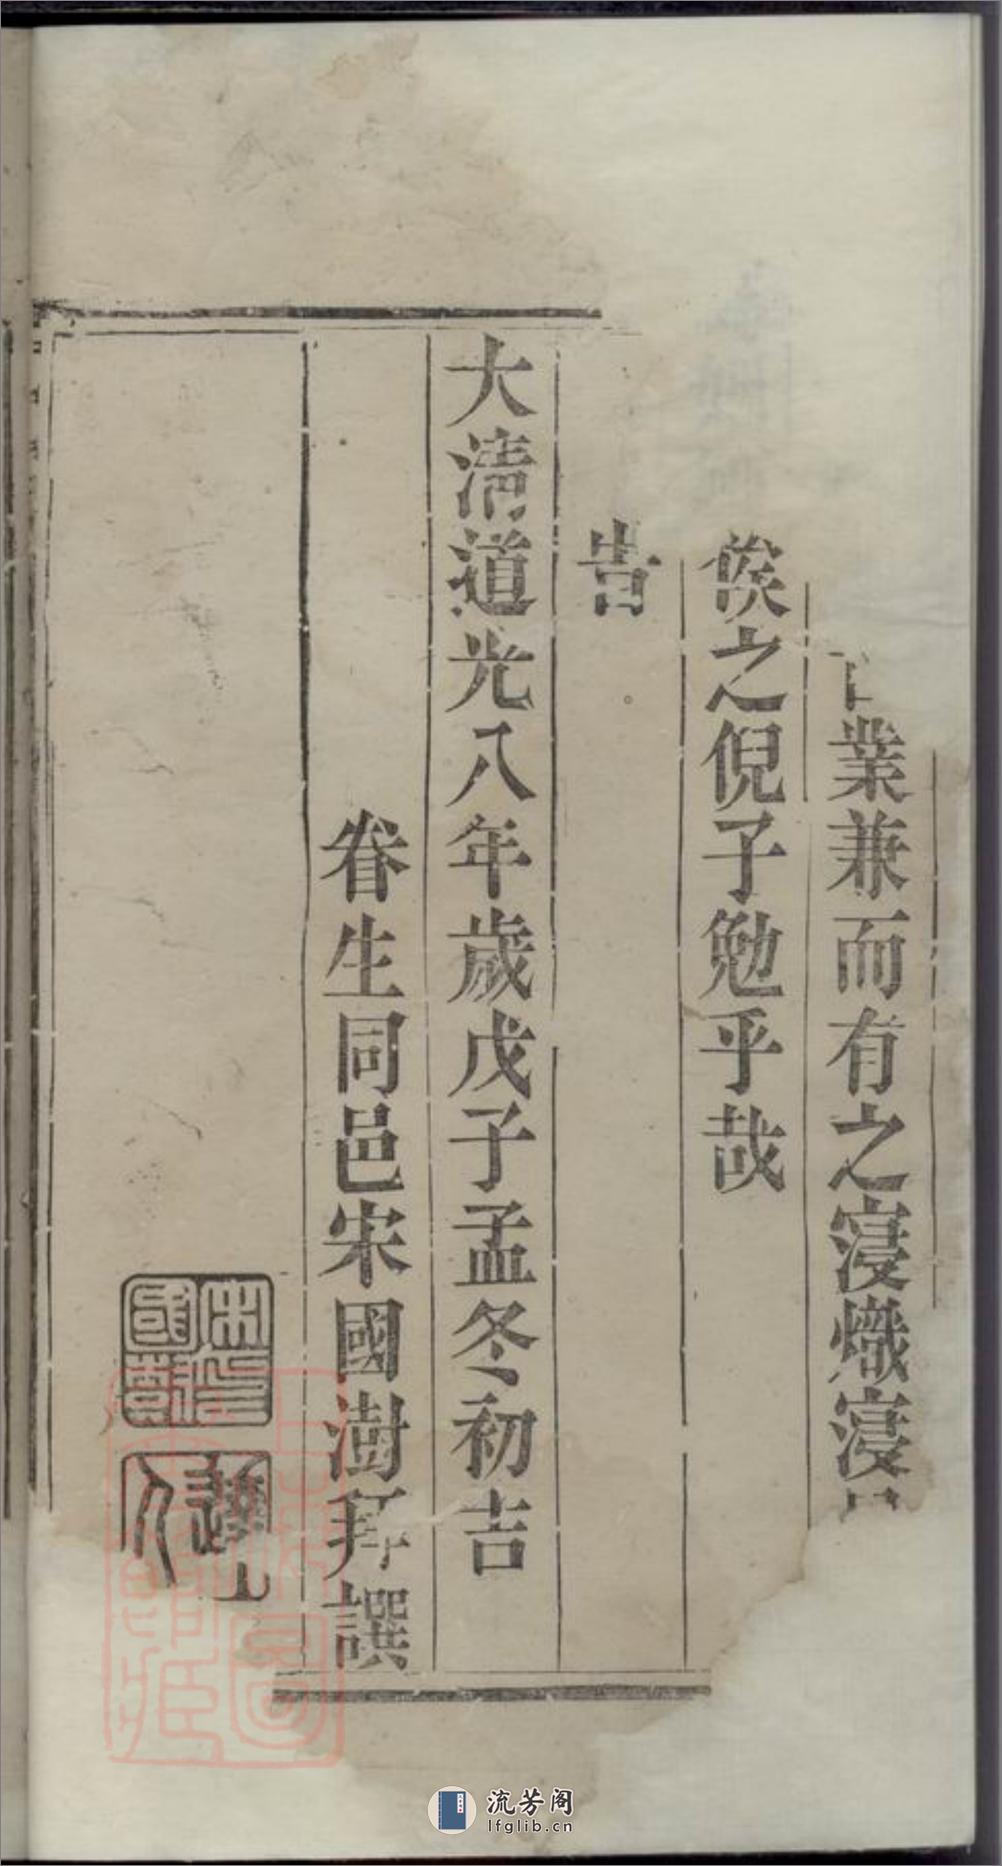 業兼而有之寖熾寖
俟之倪子勉乎哉
告
大清道光八年歲戊子孟冬初吉
眷生同邑宋國澍拜譔
流芳阁
lfglib.cn